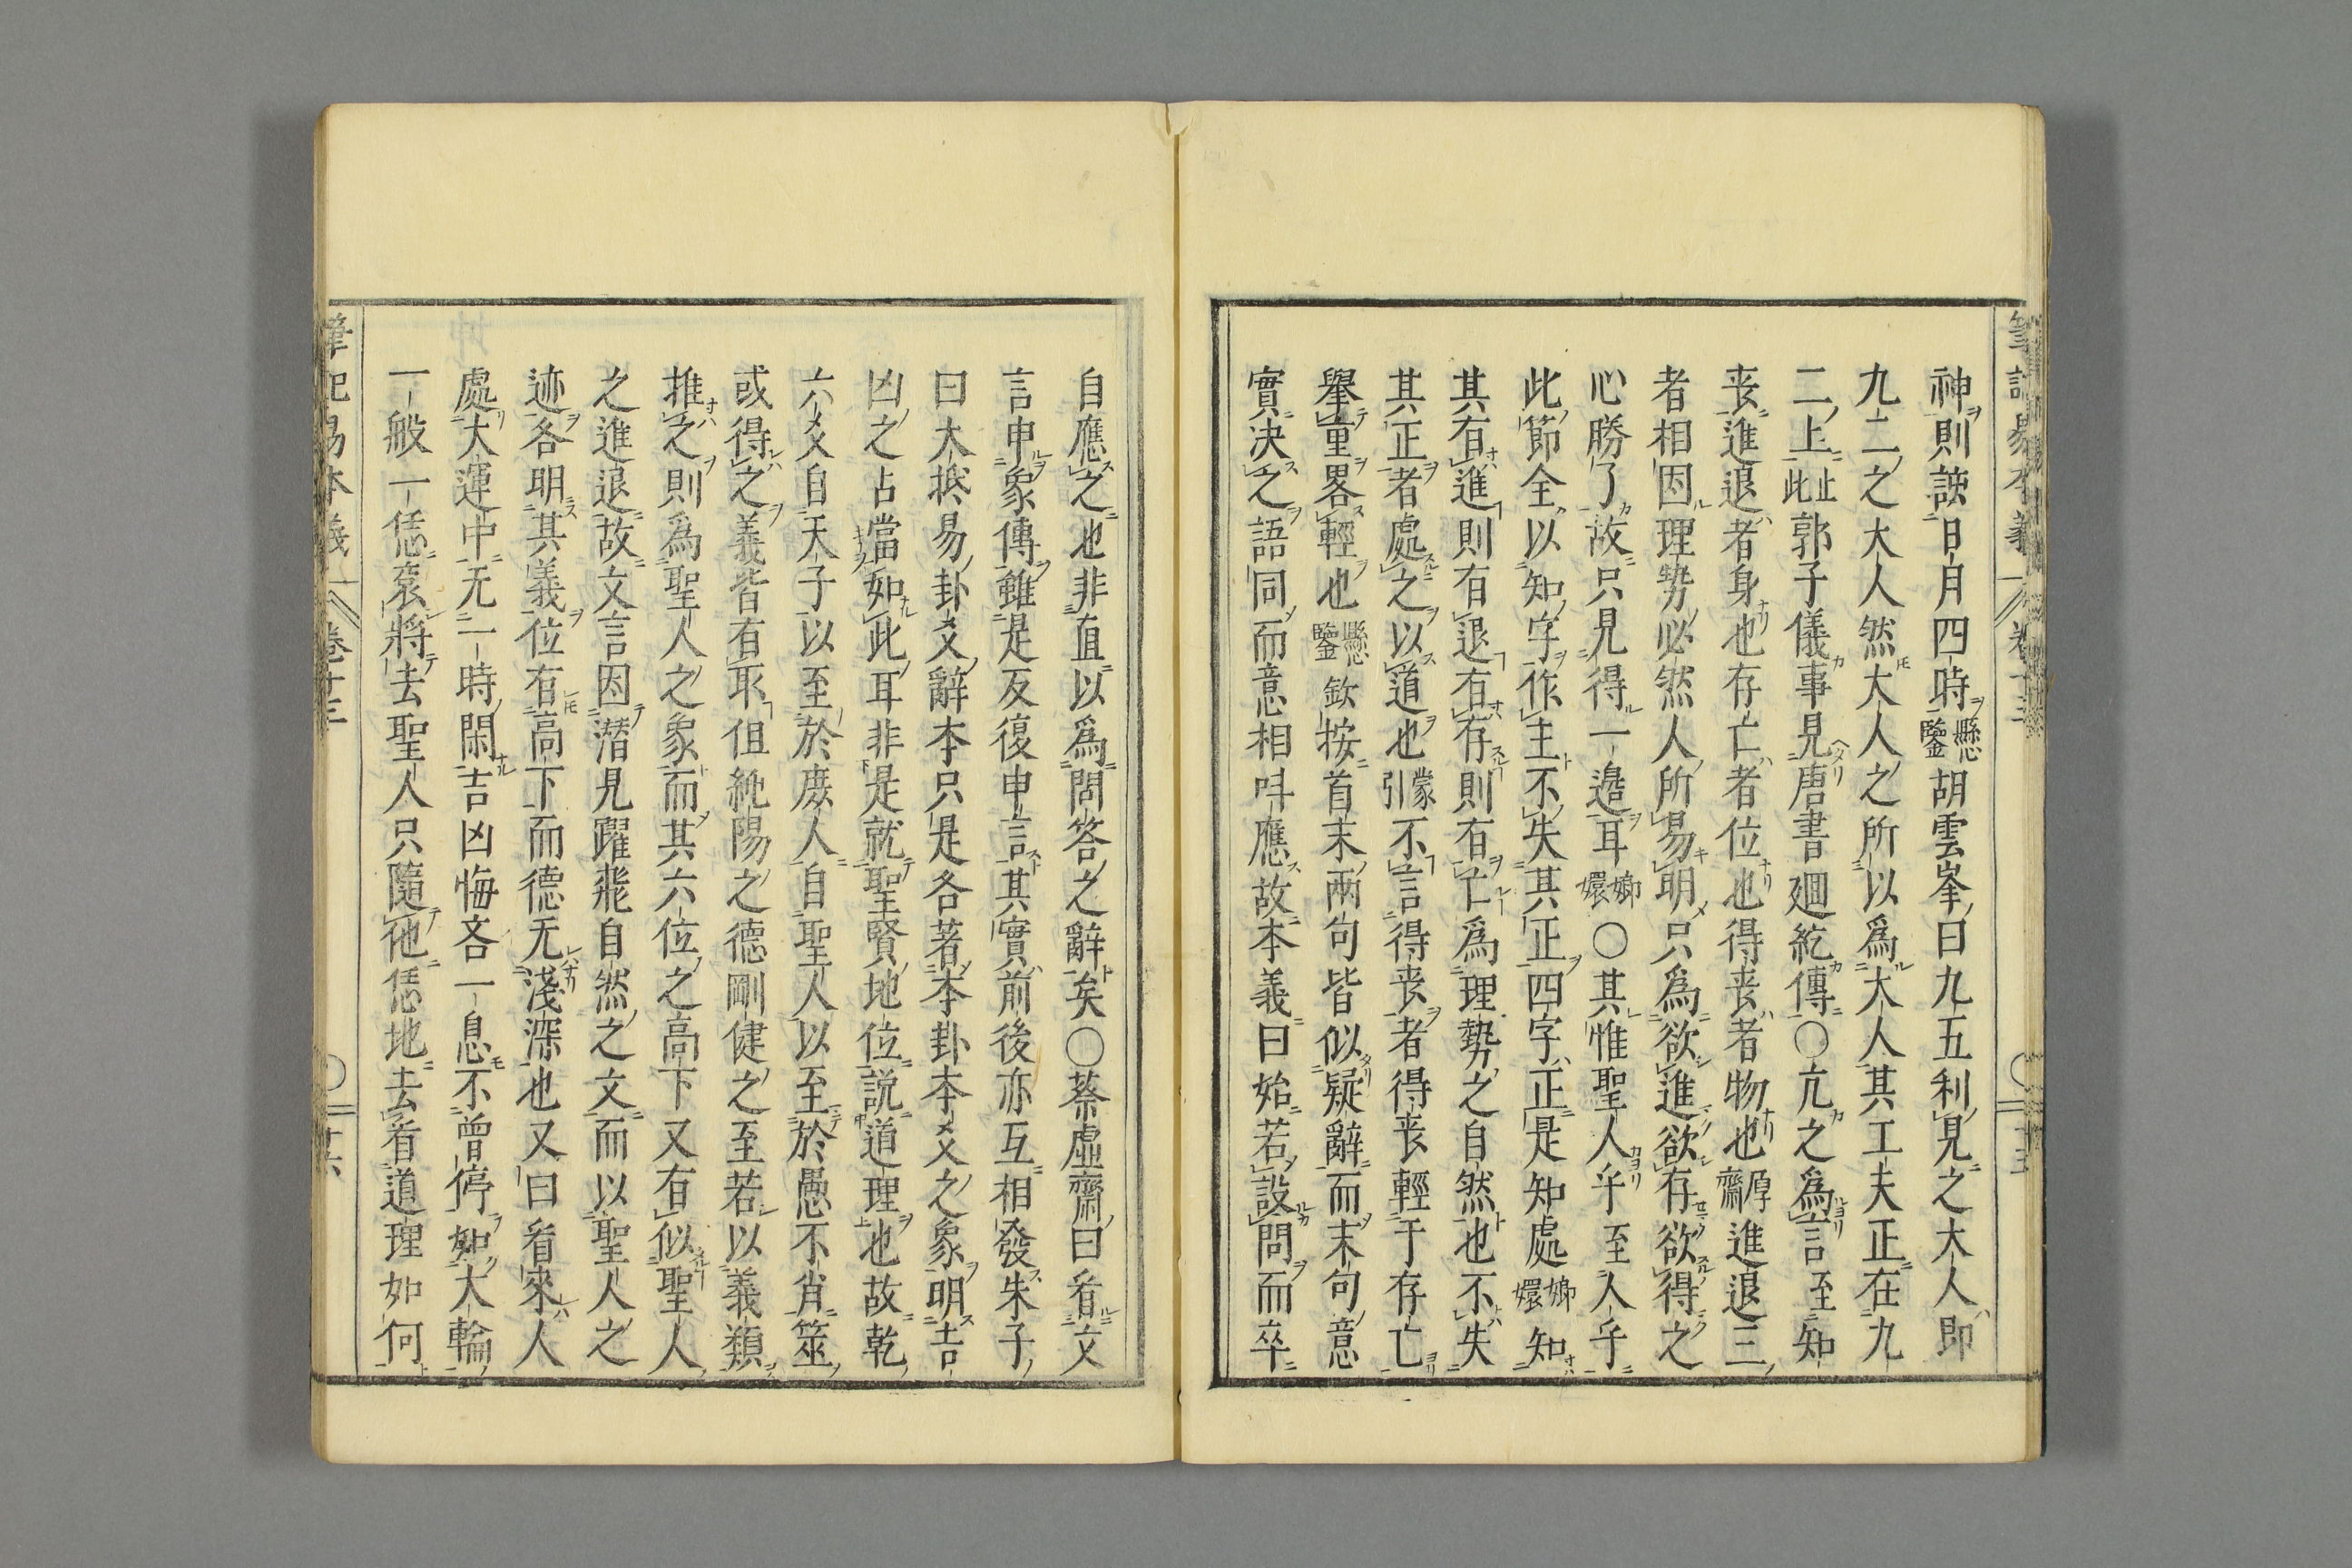 筆記易本義 卷十三 〇 十五
神則誠日月四時懸鑒胡雲峯曰九五利見之大人即
九二之大人然大人之所以爲大人其工夫正在九
二上止此郭子儀事見唐書廻紇傳〇亢之爲言至知
丧進退者身也存亡者位也得丧者物也厚齋進退三
者相因理勢必然人所易明只爲欲進欲存欲得之
心勝了故只見得一邉耳嫏嬛〇其惟聖人乎至人乎
此節全以知字作主不失其正四字正是知處嫏嬛知
其有進則有退有存則有亡爲理勢之自然也不失
其正者處之以道也蒙引不言得丧者得丧輕于存亡
舉重畧輕也懸鑒欽按首末兩句皆似疑辭而末句意
實决之語同而意相呌應故本義曰始若設問而卒
自應之也非直以爲問答之辭矣〇蔡虛齋曰看文
言申象傳雖是反復申言其實前後亦互相發朱子
曰大捴易卦爻辭本只是各著本卦本爻之象明吉
凶之占當如此耳非是就聖賢地位説道理也故乾
六爻自天子以至於庶人自聖人以至於愚不肖筮
或得之義皆有取但純陽之德剛健之至若以義類
推之則爲聖人之象而其六位之高下又有似聖人
之進退故文言因潛見躍飛自然之文而以聖人之
迹各明其義位有高下而德无淺深也又曰看來人
處大運中无一時閑吉凶悔吝一息不曾停如大輪
一般一恁衮將去聖人只隨他恁地去看道理如何
筆記易本義 卷十三 〇 十六